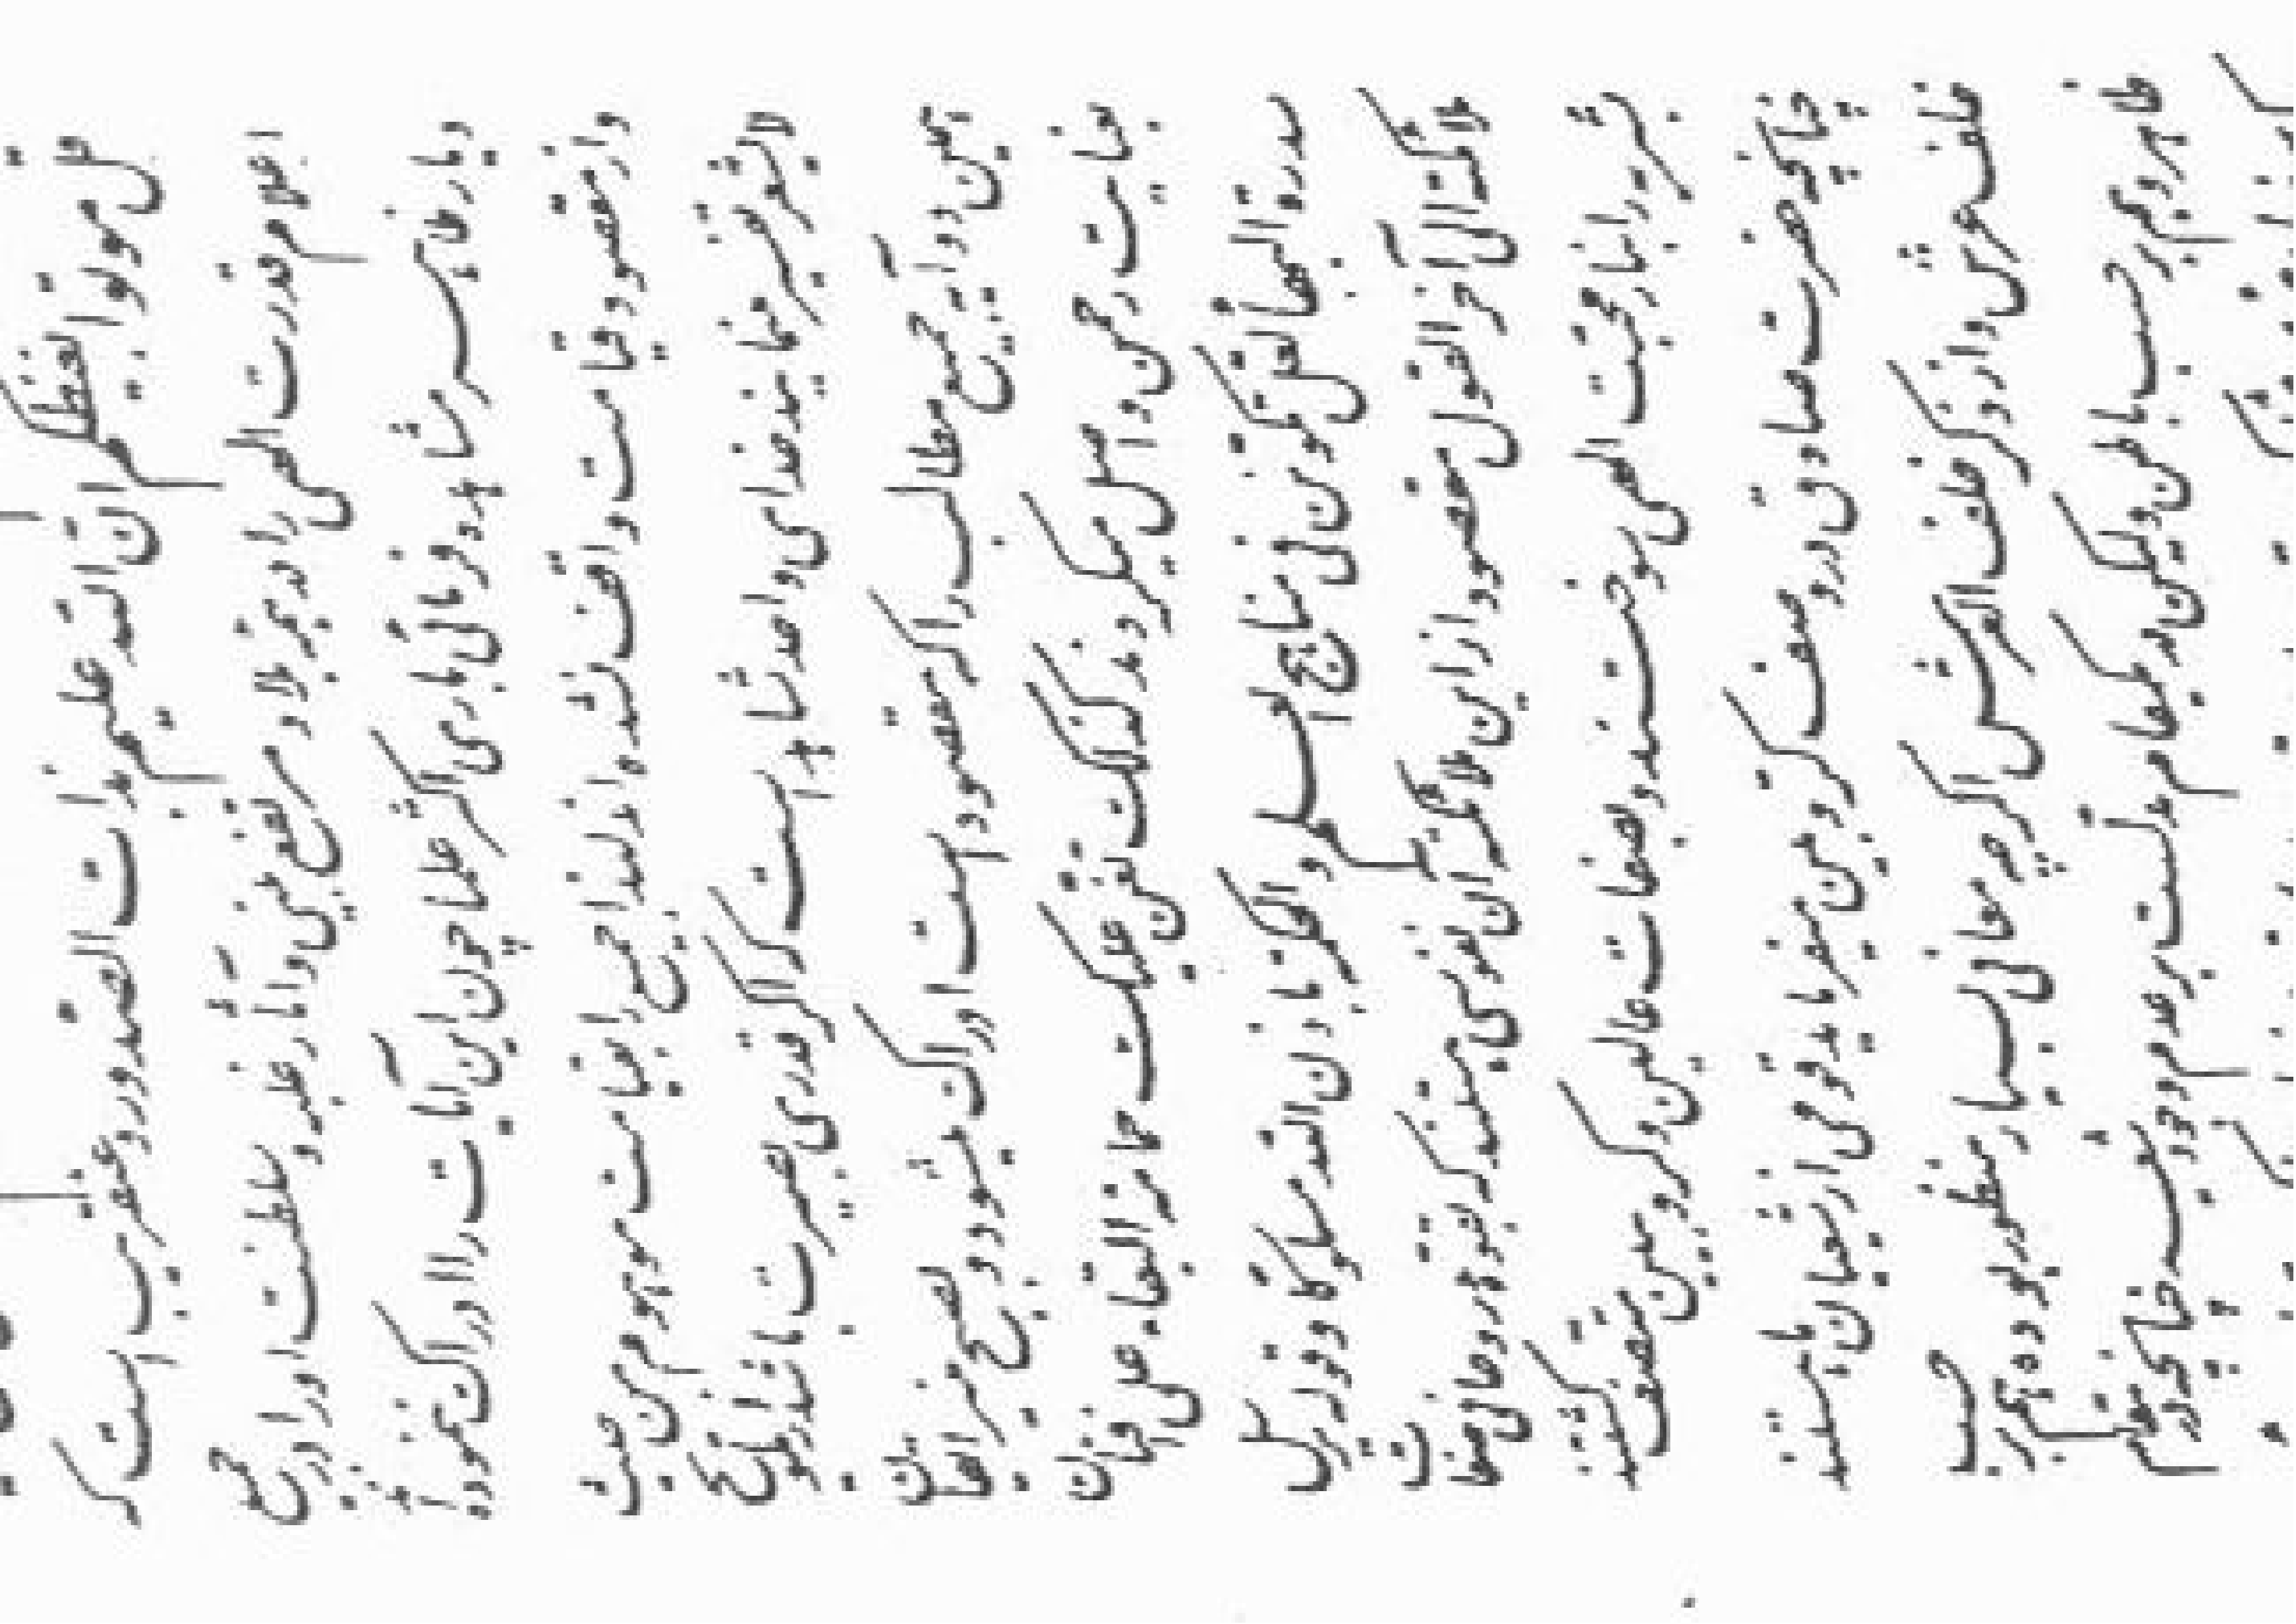 قل موتوا بغیظکم ان الله علیم بذات الصدور و عنقریب است که
اعلام قدرت الهی را در همه بلاد مرتفع بینی و آثار غلبه و سلطنت او را در جمیع
دیار ظاهر مشاهده فرمائی باری اکثر علما چون این آیات را ادراک ننموده اند
و از مقصود قیامت واقف نشده اند لهذا جمیع را بقیامت موهوم من حیث
لا یشعر تفسیر مینمایند خدای واحد شاهد است که اگر قدری بصیرت باشد از تلویح
این دو آیه جمیع مطالب را که مقصود است ادراک میشود و بصبح منیر ایقان
بعنایت رحمن واصل میگردند کذلک تغن علیک حمامة البقاء علی افنان
سدرة البهاء لعل تکونن فی مناهج العلم و الحکمة باذن الله مسلوکا و قوله یرسل
ملائکته الی آخر القول مقصود از این ملائکه آن نفوسی هستند که بقوه روحانیه صفات
بشریه را بنار محبت الهی سوختند و بصفات عالین و کروبین متصف گشتند
چنانچه حضرت صادق در وصف کروبین میفرماید قومی از شیعیان ما هستند
خلف عرش و از ذکر خلف العرش اگرچه معانی بسیار منظور بوده هم بر حسب
ظاهر و هم بر حسب باطن ولیکن در یکمقام مدلست بر عدم وجود شیعه چنانچه در مقام